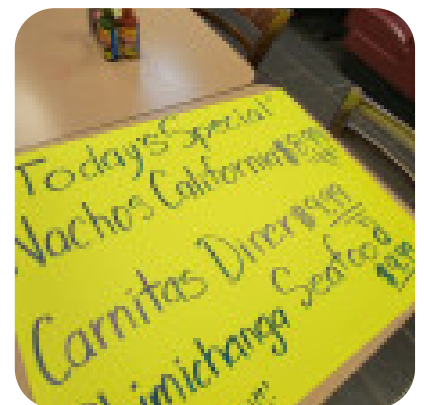 Today's Special
Nachos California $8.99
Carnitas Diner $9.99
Chimichanga Seafood $9.99